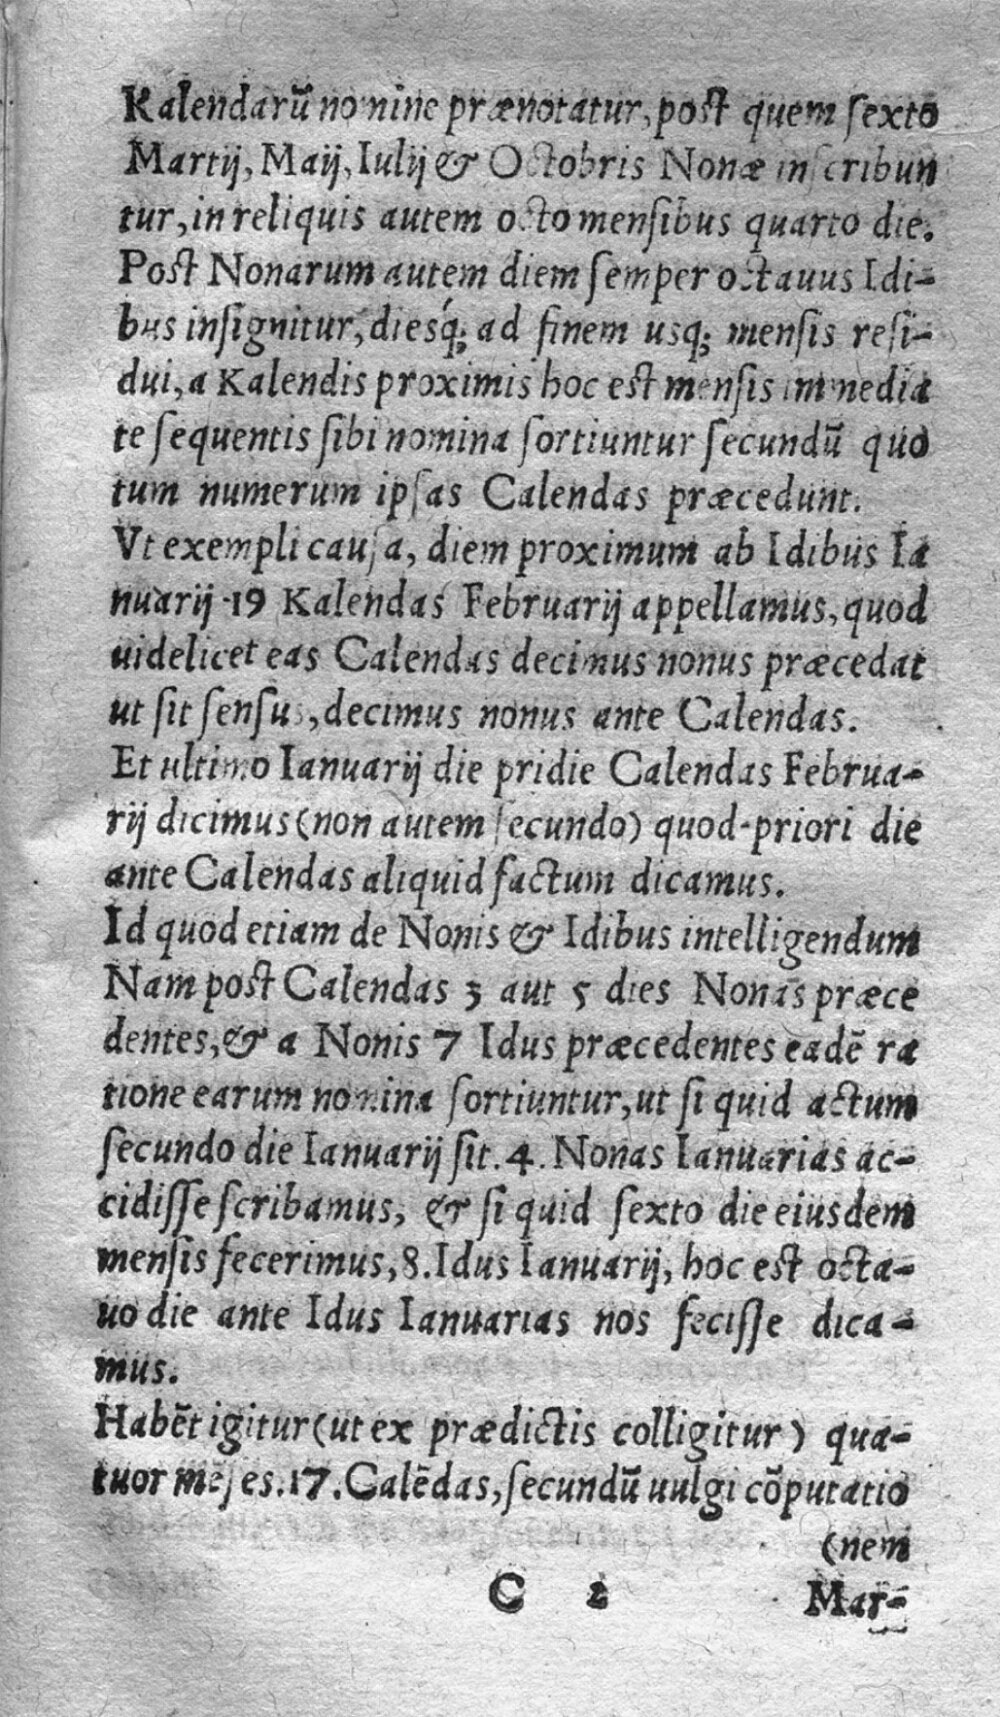 Kalendarū nomine prænotatur, post quem ſexto
Martij, Maij, Iulij & Octobris Nonæ inſcribun
tur, in reliquis autem octo menſibus quarto die.
Post Nonarum autem diem ſemper octauus Idi-
bus inſignitur, diesq́; ad finem usq; menſis reſi-
dui, a Kalendis proximis hoc est menſis immedia
te ſequentis ſibi nomina ſortiuntur ſecundū quo
tum numerum ipſas Calendas præcedunt.
Vt exempli cauſa, diem proximum ab Idibus Ia
nuarij 19 Kalendas Februarij appellamus, quod
uidelicet eas Calendas decimus nonus præcedat
ut ſit ſenſus, decimus nonus ante Calendas.
Et ultimo Ianuarij die pridie Calendas Februa-
rij dicimus (non autem ſecundo) quod priori die
ante Calendas aliquid factum dicamus.
Id quod etiam de Nonis & Idibus intelligendum
Nam post Calendas 3 aut 5 dies Nonas præce
dentes, & a Nonis 7 Idus præcedentes eadē ra
tione earum nomina ſortiuntur, ut ſi quid actum
ſecundo die Ianuarij ſit. 4. Nonas Ianuarias ac-
cidiſſe ſcribamus, & ſi quid ſexto die eiusdem
menſis fecerimus, 8. Idus Ianuarij, hoc est octa-
uo die ante Idus Ianuarias nos feciſſe dica-
mus.
Habēt igitur (ut ex prædictis colligitur) qua-
tuor mēſes. 17. Calēdas, ſecundū uulgi cōputatio
(nem
C 2 Mar-